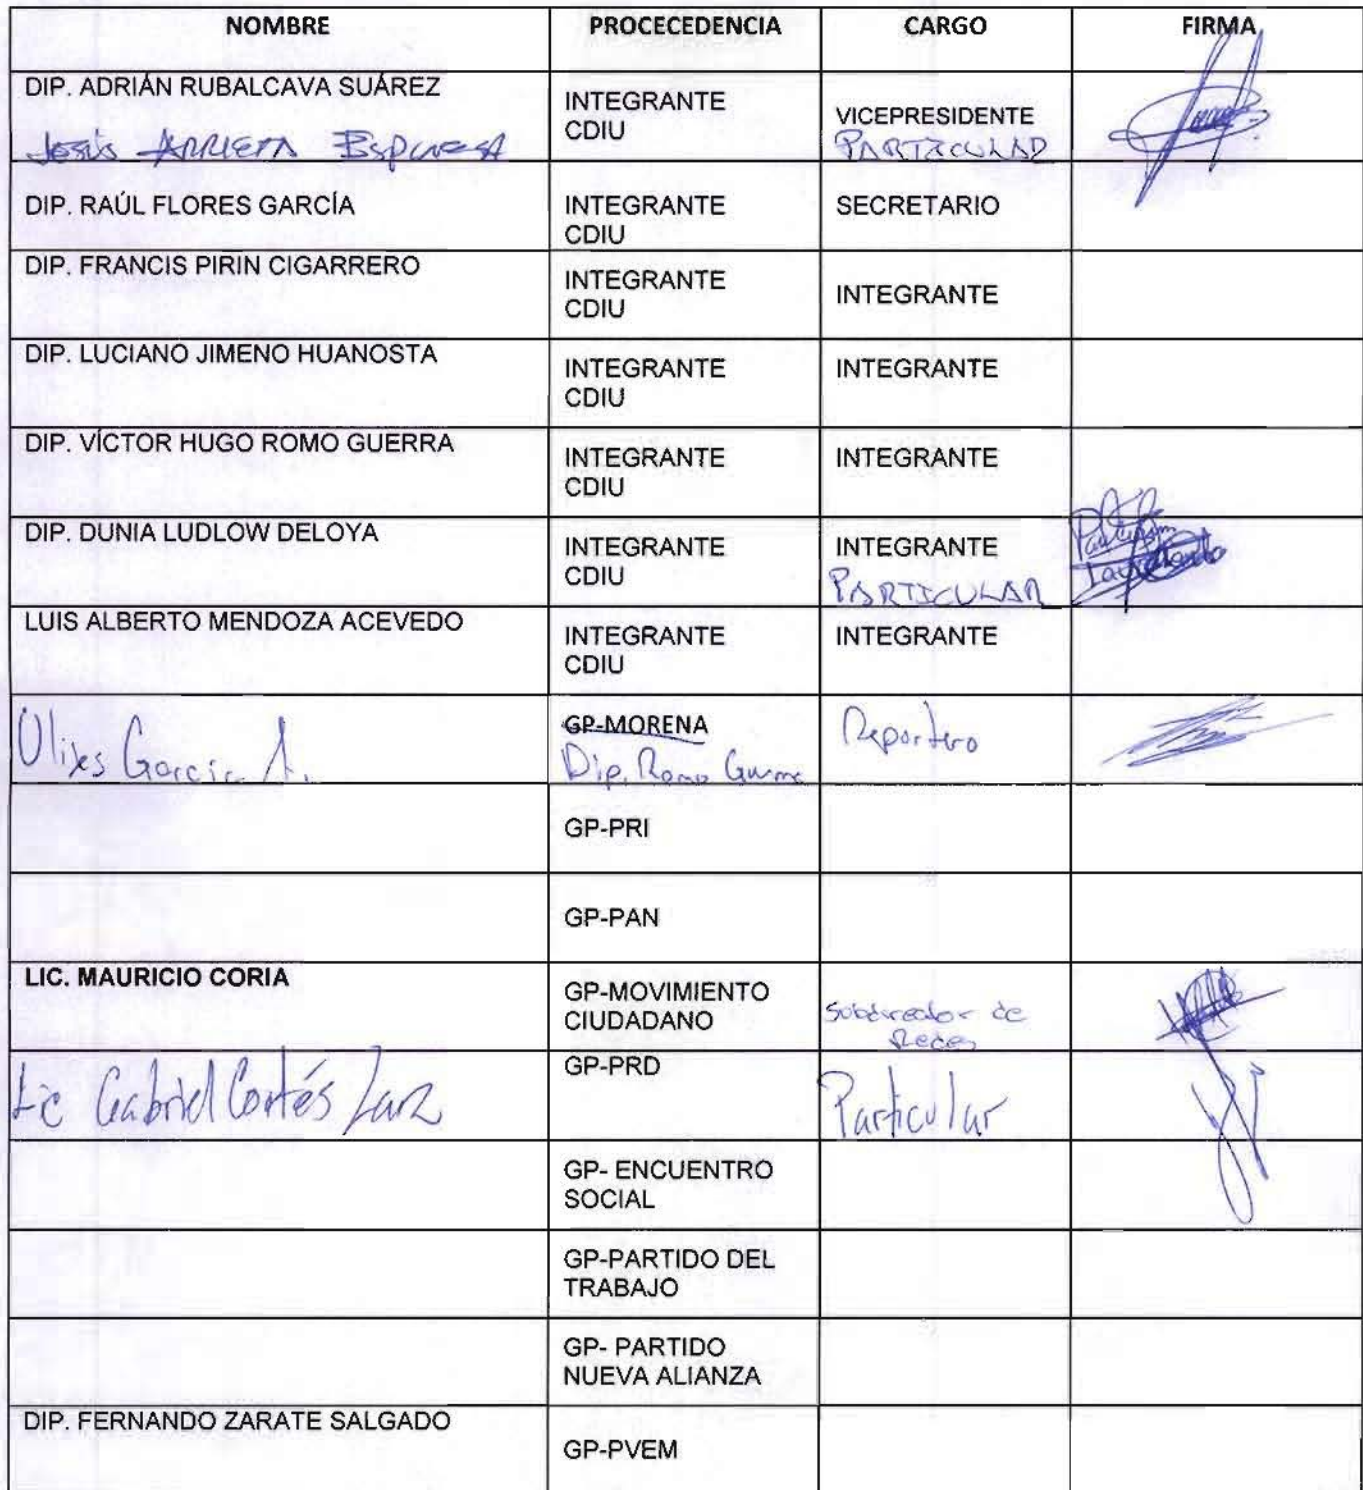 NOMBRE PROCECEDENCIA CARGO FIRMA
DIP. ADRIÁN RUBALCAVA SUÁREZ
INTEGRANTE
CDIU
VICEPRESIDENTE
Jesús ARRIETA PARTICULAR
DIP. RAÚL FLORES GARCÍA INTEGRANTE SECRETARIO
CDIU
DIP. FRANCIS PIRIN CIGARRERO
INTEGRANTE
CDIU
INTEGRANTE
DIP. LUCIANO JIMENO HUANOSTA
INTEGRANTE INTEGRANTE
CDIU
DIP. VÍCTOR HUGO ROMO GUERRA
INTEGRANTE INTEGRANTE
CDIU
DIP. DUNIA LUDLOW DELOYA
INTEGRANTE INTEGRANTE
CDIU
PARTICULAR
LUIS ALBERTO MENDOZA ACEVEDO
INTEGRANTE INTEGRANTE
CDIU
GP-MORENA
Ulixes García A. Dip. Romo Reportero
GP-PRI
GP-PAN
LIC. MAURICIO CORIA
GP-MOVIMIENTO
CIUDADANO
Subdirector de
Redes
GP-PRD
Lic Gabriel Cortés Particular
GP- ENCUENTRO
SOCIAL
GP-PARTIDO DEL
TRABAJO
GP- PARTIDO
NUEVA ALIANZA
DIP. FERNANDO ZARATE SALGADO
GP-PVEM